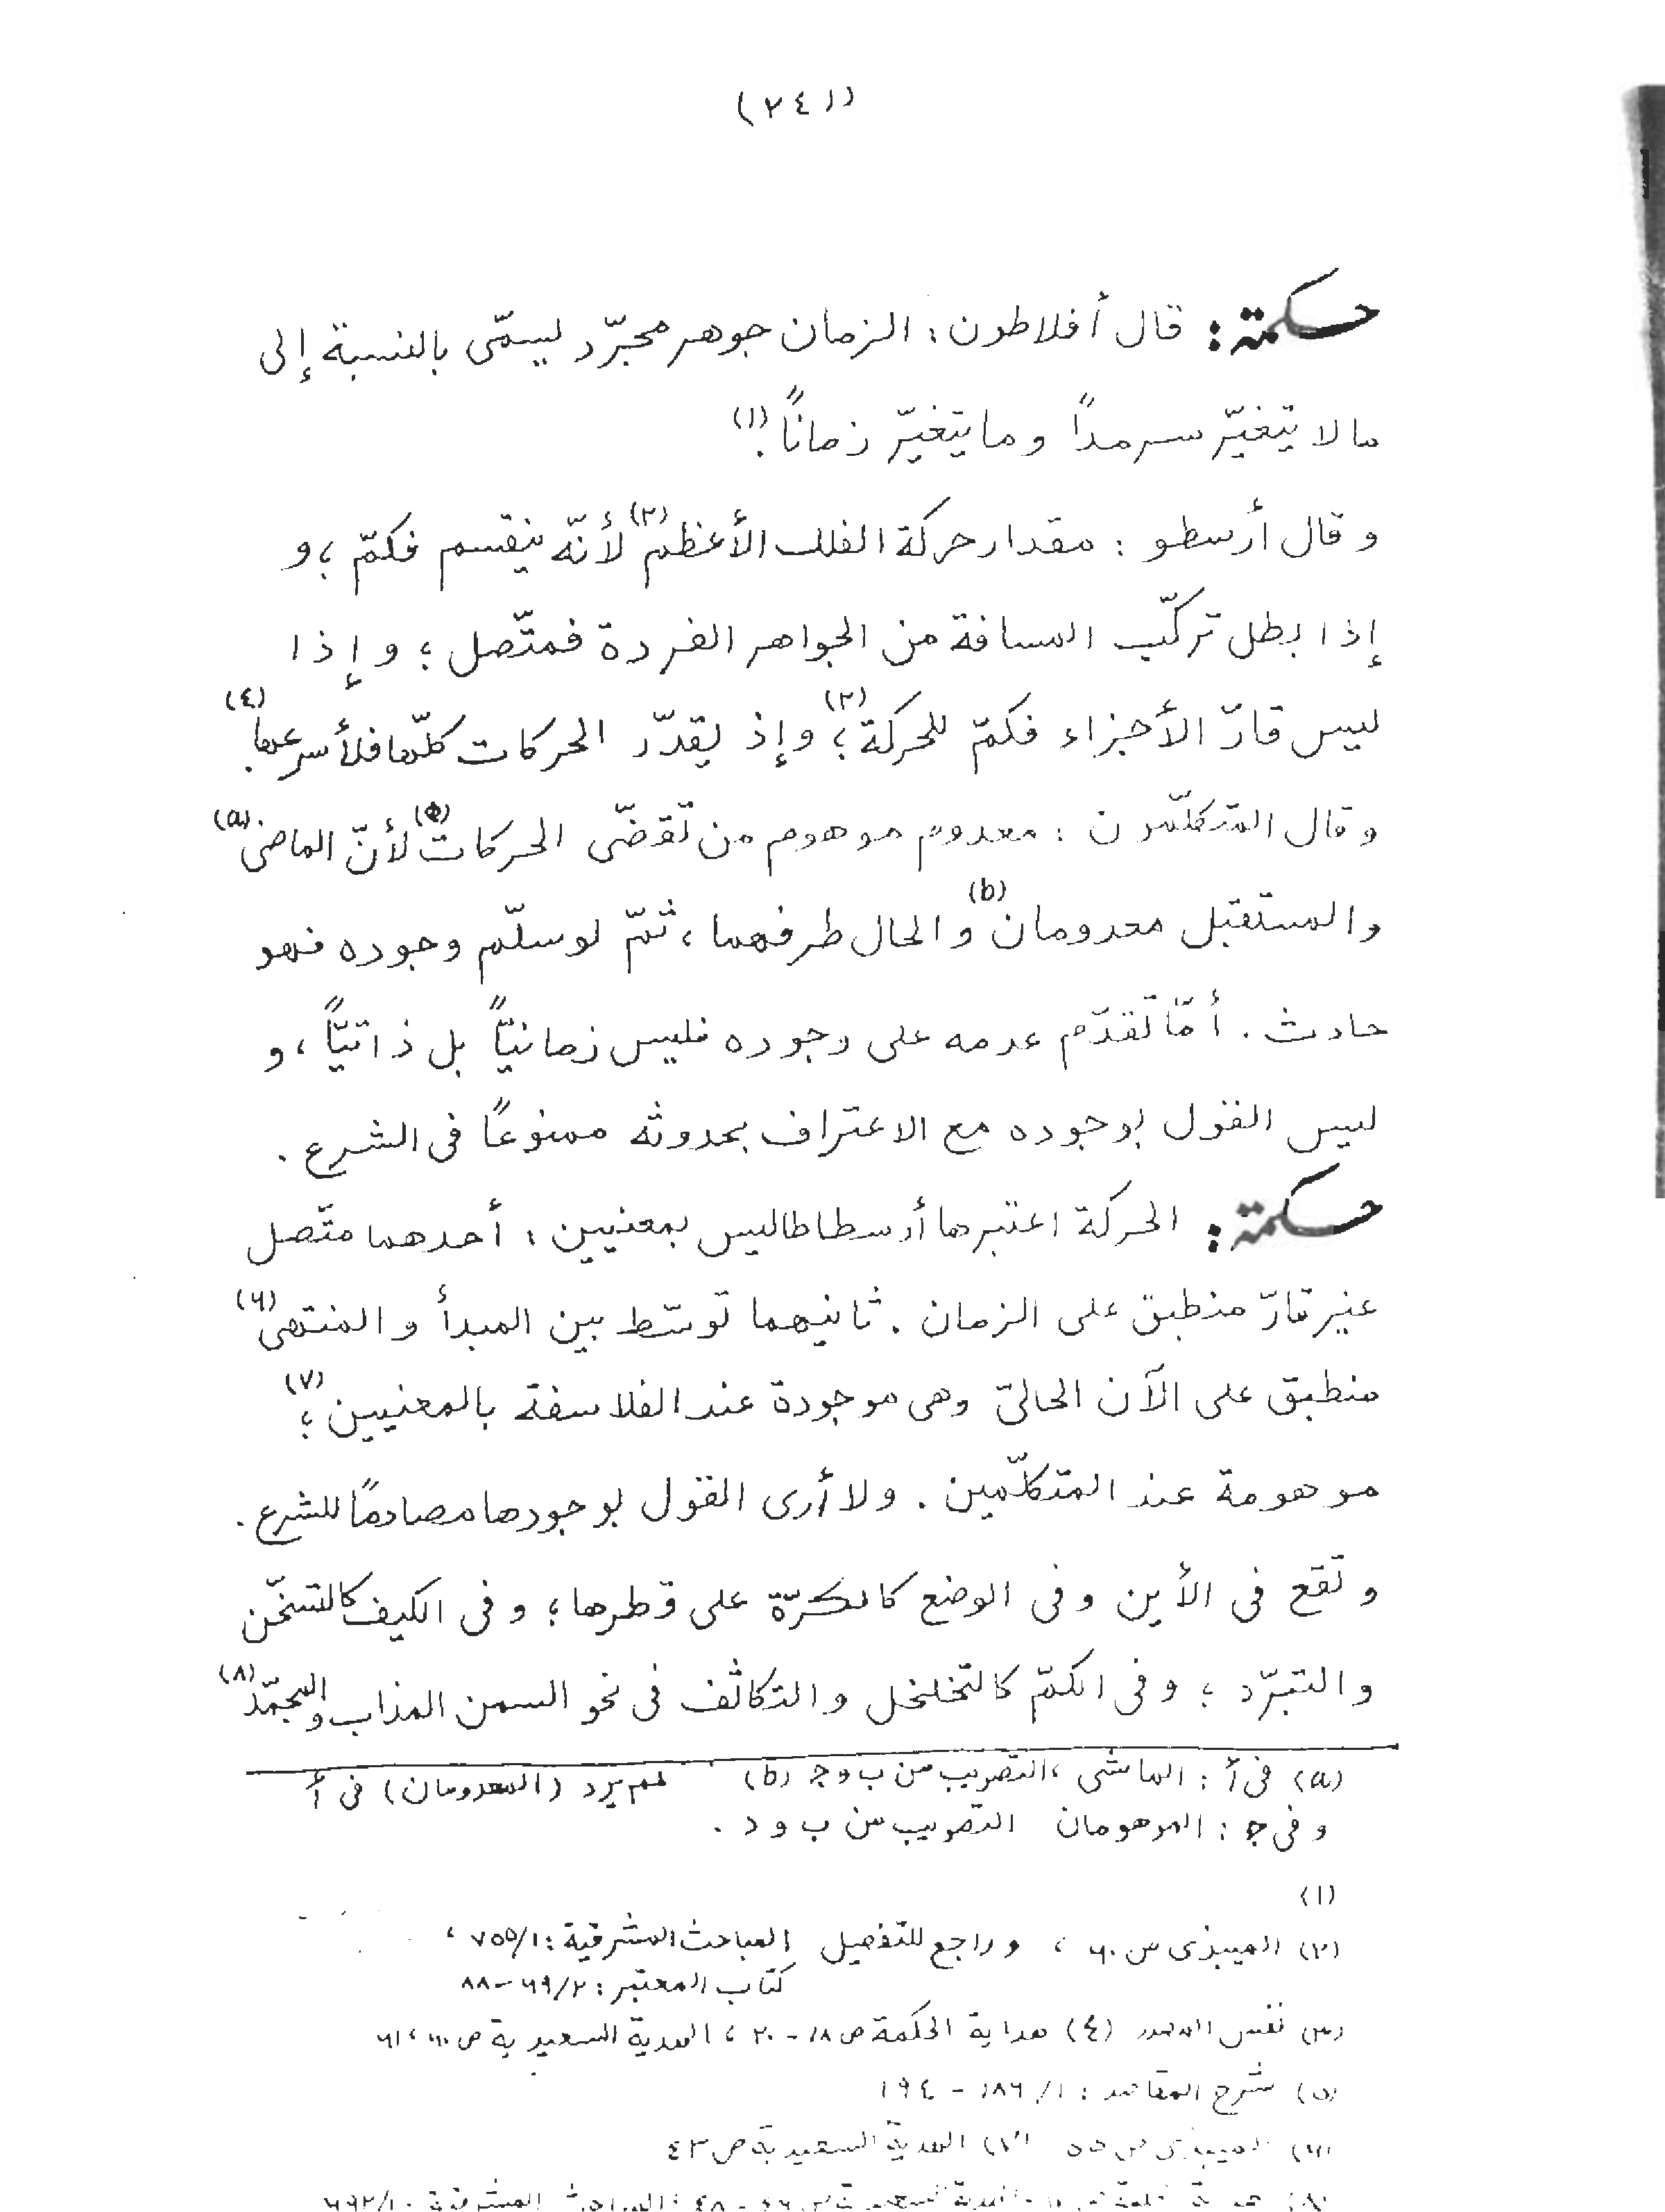 (٢٤١)
حكمة: قال أفلاطون: الزمان جوهر مجرّد يسمّى بالنسبة إلى
مالا يتغيّر سرمداً وما يتغيّر زماناً.(١)
وقال أرسطو: مقدار حركة الفلك الأعظم(٢) لأنّه ينقسم فكمّ؛ و
إذا بطل تركّب المسافة من الجواهر الفردة فمتّصل؛ وإذا
ليس قارّ الأجزاء فكمّ للحركة؛(٣) وإذ يقدّر الحركات كلّها فلأسرعها.(٤)
وقال المتكلّمون: معدوم موهوم من تقضّى الحركات(٥) لأنّ الماضى(a)
والمستقبل معدومان(b) والحال طرفهما، ثمّ لو سلّم وجوده فهو
حادث. أمّا تقدّم عدمه على وجوده فليس زمانيّاً بل ذاتيّاً، و
ليس القول بوجوده مع الاعتراف بحدوثه ممنوعاً فى الشرع.
حكمة: الحركة اعتبرها أرسطاطاليس بمعنيين: أحدهما متّصل
غير قارّ منطبق على الزمان. ثانيهما توسّط بين المبدأ والمنتهى(٦)
منطبق على الآن الحاليّ وهى موجودة عند الفلاسفة بالمعنيين؛(٧)
موهومة عند المتكلّمين. ولا أرى القول بوجودها مصادماً للشرع.
وتقع فى الأين وفى الوضع كالكرّة على قطرها؛ وفى الكيف كالتسخّن
والتبرّد؛ وفى الكمّ كالتخلخل والتكاثف فى نحو السمن المذاب والمجمّد(٨)
(a) فى أ: الماشى، التصويب من ب و ج (b) لم يرد (المعدومان) فى أ
وفى ج: الموهومان التصويب من ب و د.
(١)
(٢) الميبذى ص ٦٠، وراجع للتفصيل المباحث المشرقية: ٧٥٥/١،
كتاب المعتبر: ٦٩/٢-٨٨
(٣) نفس المصدر (٤) هداية الحكمة ص ١٨-٢٠، الهدية السعيدية ص ٦٠، ٦١
(٥) شرح المقاصد: ١٨٦/١-١٩٤
(٦) الميبذى ص ٥٥ (٧) الهدية السعيدية ص ٤٣
(٨) السعيدية المشرقية: ٦٩٢/١